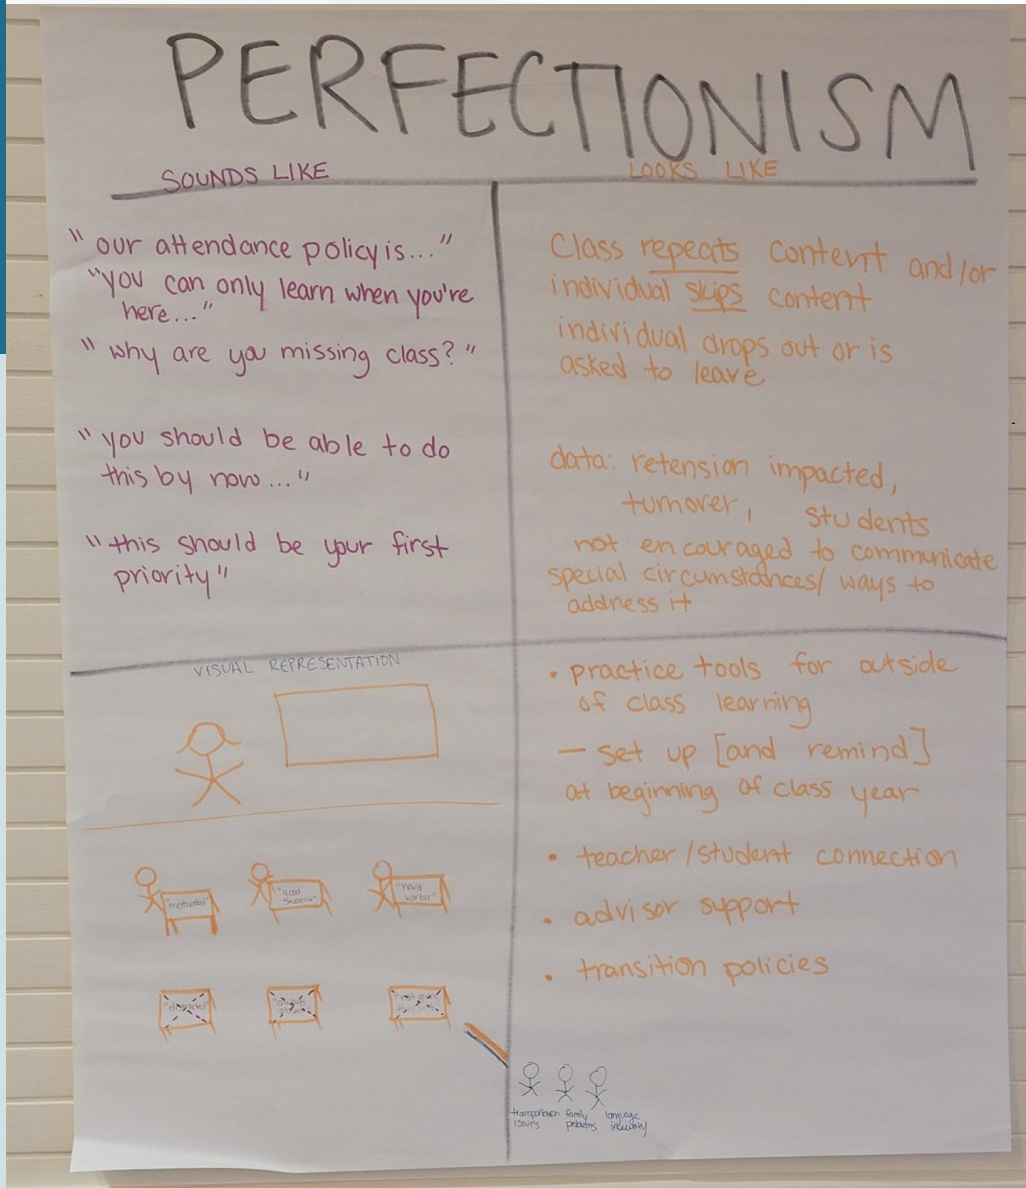 PERFECTIONISM
SOUNDS LIKE
"our attendance policy is..."
"you can only learn when you're
here..."
"why are you missing class?"
"you should be able to do
this by now..."
"this should be your first
priority"
LOOKS LIKE
Class repeats content and/or
individual skips content
individual drops out or is
asked to leave
data: retension impacted,
turnover, students
not encouraged to communicate
special circumstances/ ways to
address it
VISUAL REPRESENTATION
"motivated"
"good
student"
"hard
worker"
• practice tools for outside
of class learning
— set up [and remind]
at beginning of class year
• teacher/student connection
• advisor support
• transition policies
transportation
issues
family
problems
language
insecurity